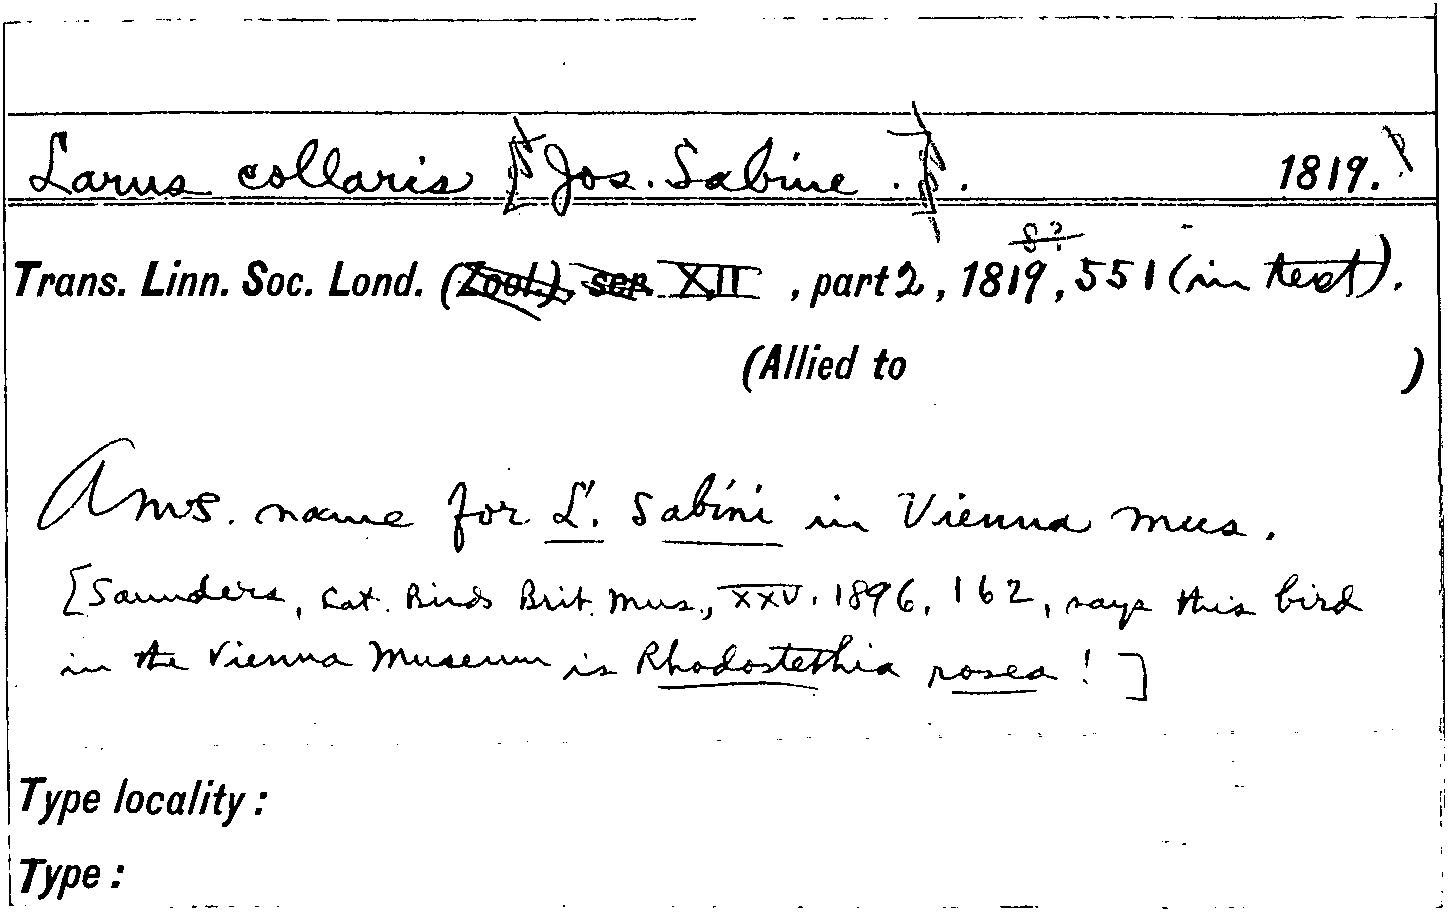 Larus collaris [Jos. Sabine.]. 1819.
8?
Trans. Linn. Soc. Lond. (Zool.), ser. XII, part 2, 1819, 551 (in text).
(Allied to )
A ms. name for L. Sabini in Vienna mus.
[Saunders, Cat. Birds Brit. Mus., XXV. 1896, 162, says this bird
in the Vienna Museum is Rhodostethia rosea! ]
Type locality:
Type: